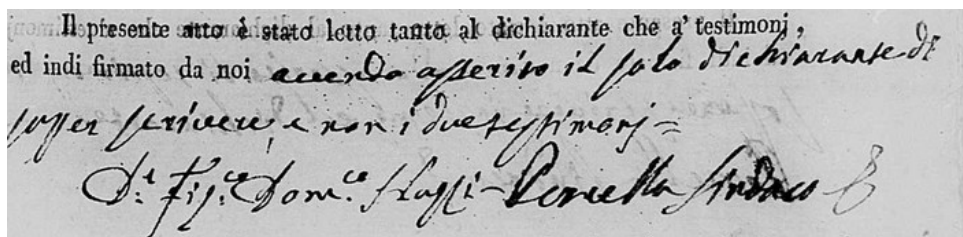 Il presente atto è stato letto tanto al dichiarante che a' testimonj,
ed indi firmato da noi avendo asserito il solo dichiarante di
saper scrivere, e non i due testimonj =
Dom.co Sindaco